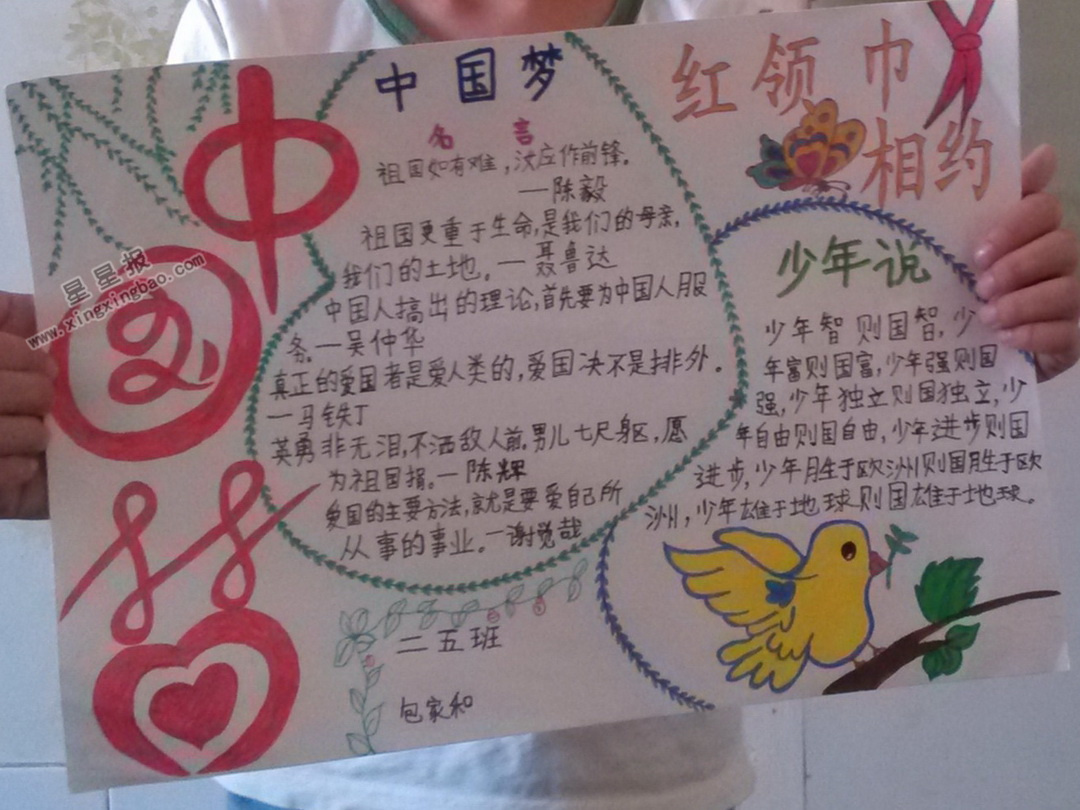 中国梦
中国梦
名言
祖国如有难，汝应作前锋。
—陈毅
祖国更重于生命，是我们的母亲，
我们的土地。—聂鲁达
中国人搞出的理论，首先要为中国人服
务。—吴仲华
真正的爱国者是爱人类的，爱国决不是排外。
—马铁丁
英勇非无泪，不洒敌人前。男儿七尺身区，愿
为祖国捐。—陈辉
爱国的主要方法，就是要爱自己所
从事的事业。—谢觉哉
二五班
包家和
红领巾
相约
少年说
少年智则国智，少
年富则国富，少年强则国
强，少年独立则国独立，少
年自由则国自由，少年进步则国
进步，少年胜于欧洲则国胜于欧
洲，少年雄于地球则国雄于地球。
星星报
www.xingxingbao.com